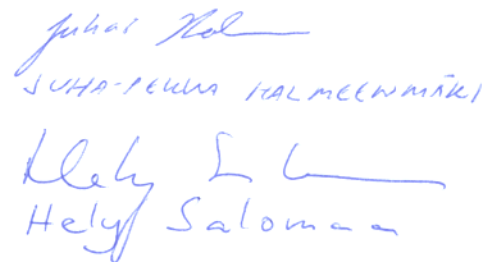 Juha
JUHA-PEKKA HALMEENMÄKI
Hely
Hely Salomaa